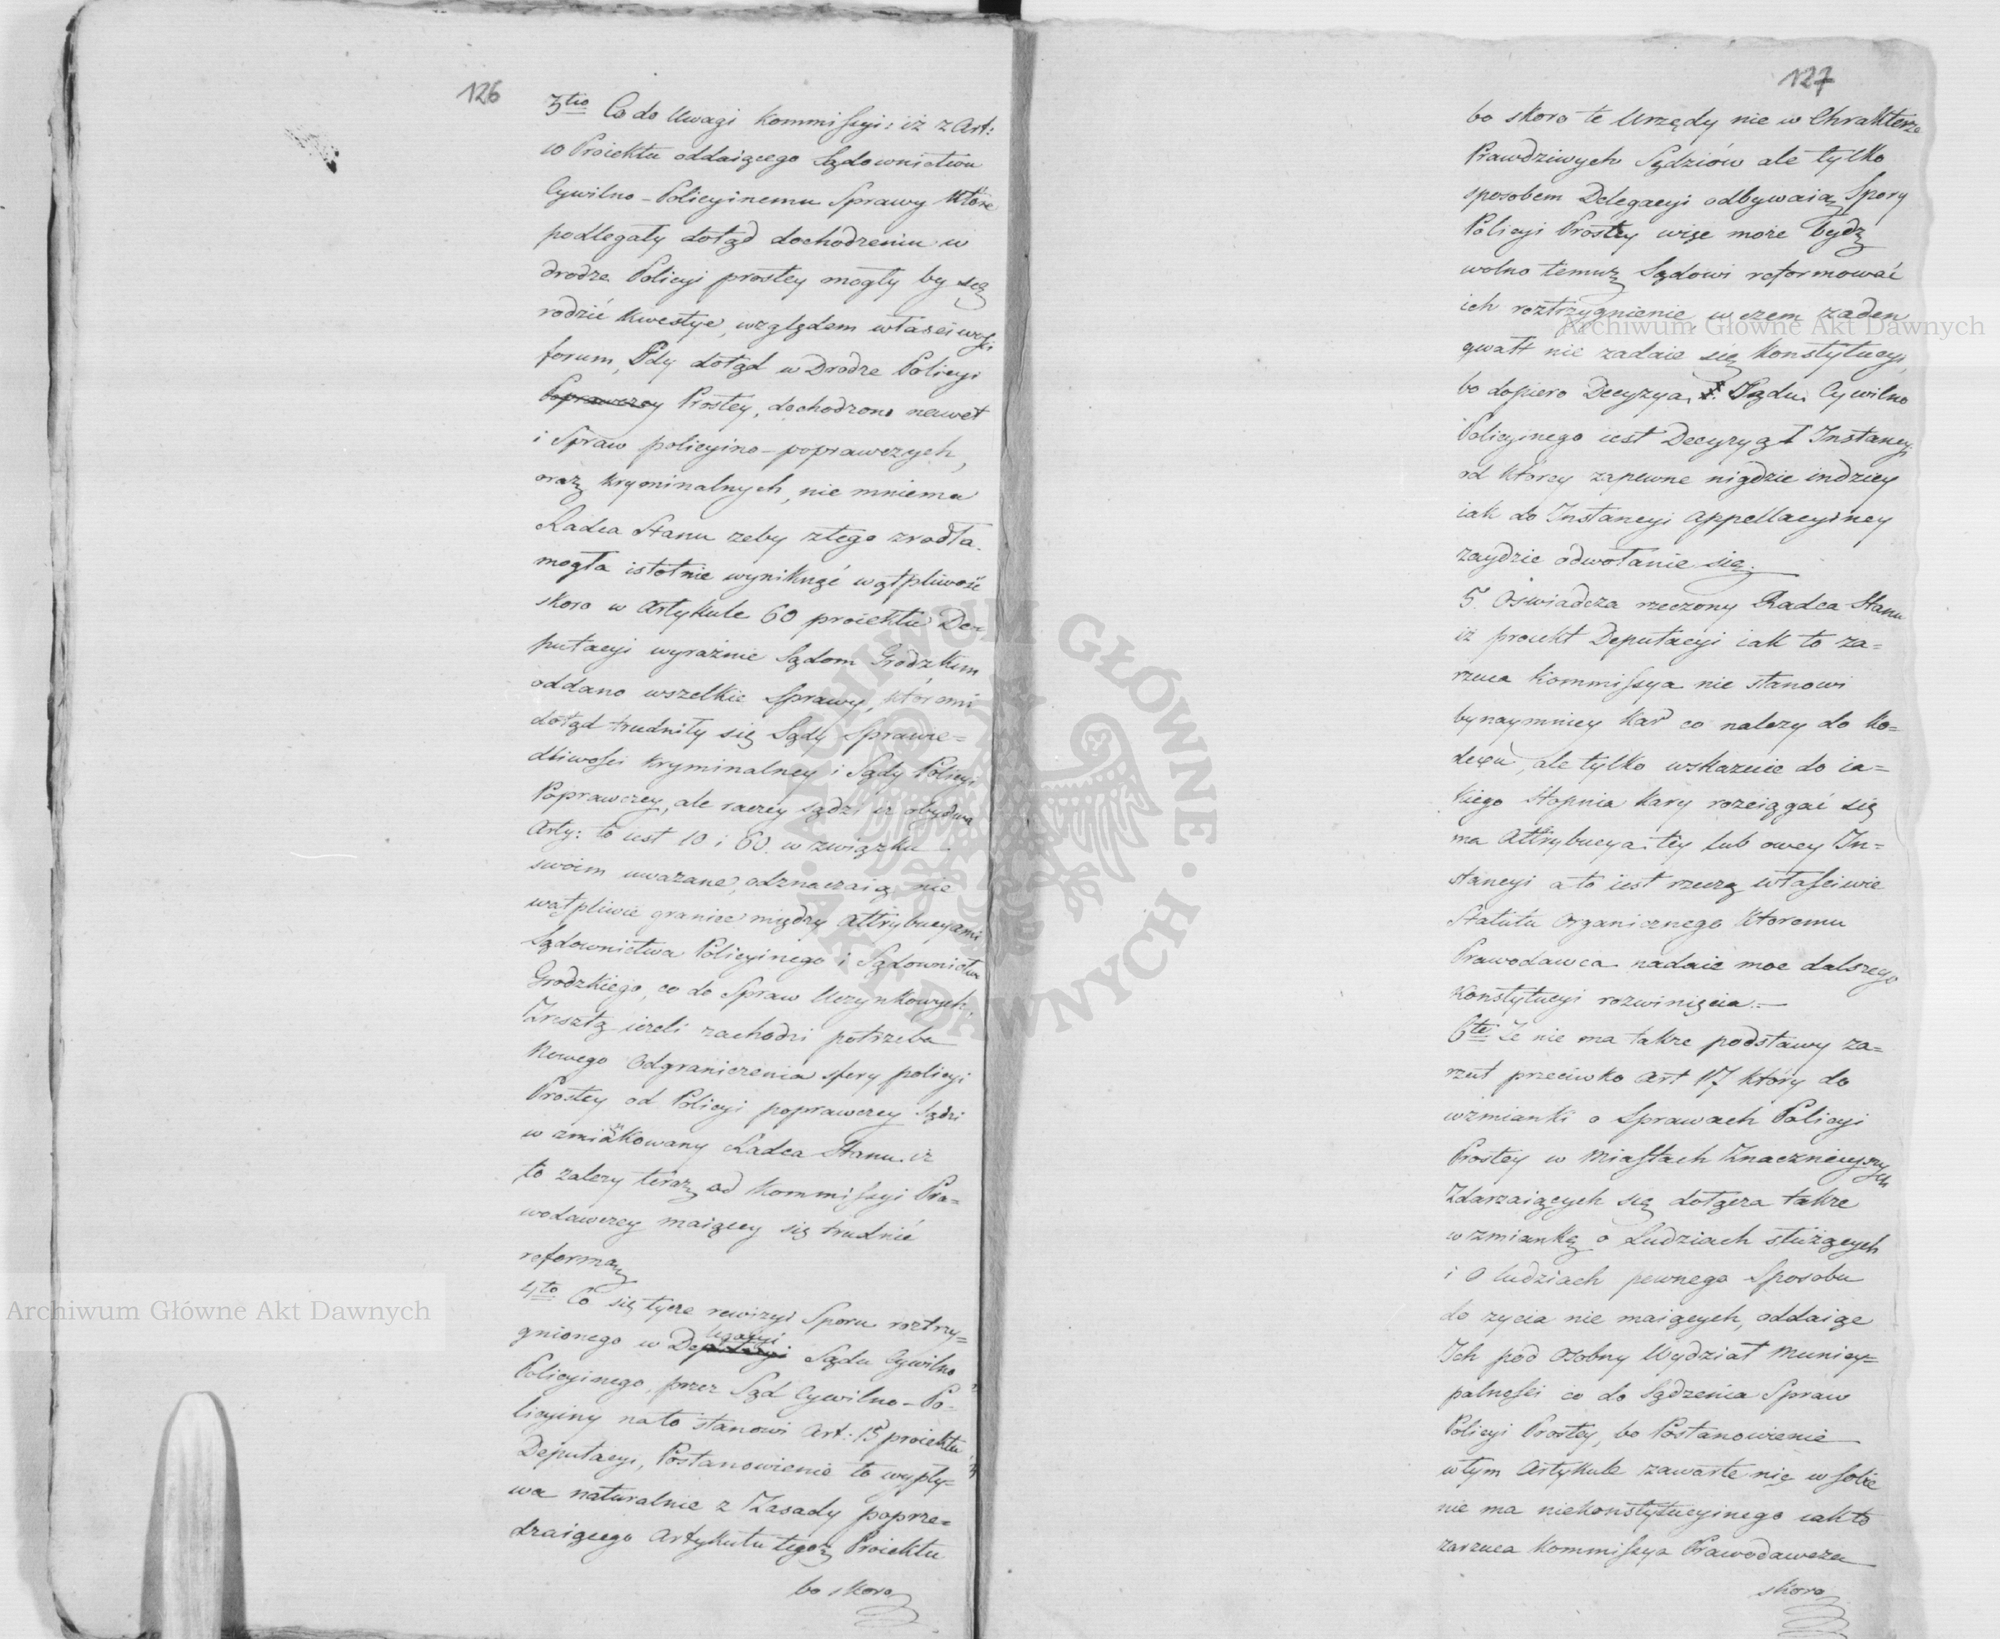 126
3tio Co do Uwagi Kommissyi: iż z Art:
10 Proiektu oddaiącego Sądownictwu
Cywilno-Policyinemu Sprawy które
podlegały dotąd dochodzeniu w
drodze Policyi prostey mogły by się
rodzić kwestye, względem właściwości
forum, Gdy dotąd w Drodze Policyi
Poprawczey Prostey, dochodzono nawet
i Spraw policyino-poprawczych,
oraz kryminalnych, nie mniema
Radca Stanu zeby ztego zrodła
mogła istotnie wyniknąć wątpliwość
skoro w Artykule 60 proiektu De-
putacyi wyraźnie Sądom Grodzkim
oddano wszelkie Sprawy, któremi
dotąd trudniły się Sądy Sprawie=
dliwości Kryminalney i Sądy Policyi
Poprawczey, ale raczey sądzi iż obydwa
Arty: to iest 10 i 60. w związku
swoim uwazane, odznaczaią nie
wątpliwie granice między Attrybucyami
Sądownictwa Policyinego i Sądownictwa
Grodzkiego, co do Spraw Uczynkowych,
Zresztą iezeli zachodzi potrzeba
Nowego Odgraniczenia sfery policyi
Prostey od Policyi poprawczey Sądzi
wzmiankowany Radca Stanu iż
to zalezy teraz od Kommissyi Pra-
wodawczey maiącey się trudnić
reformą
4to Co się tycze rewizyi Sporu roztrzy=
gnionego w Delegacyi Sądu Cywilno
Policyinego, przez Sąd Cywilno-Po-
licyiny na to stanowi Art: 15 proiektu
Deputacyi, Postanowienie to wypły-
wa naturalnie z Zasady poprze=
dzaiącego Artykułu tegoż Proiektu
bo skoro
127
bo skoro te Urzędy nie w Chrakterze
Prawdziwych Sędziów ale tylko
sposobem Delegacyi odbywaią Spory
Policyi Prostey więc może bydź
wolno temuż Sądowi reformować
ich roztrzygnienie, w czem zaden
gwałt nie zadaie się Konstytucyi,
bo dopiero Decyzya Sądu Cywilno
Policyinego iest Decyzyą I Instancyi
od którey zapewne nigdzie indziey
iak do Instancyi Appellacyiney
zaydzie odwołanie się.
5. Oswiadcza rzeczony Radca Stanu
iż proiekt Deputacyi iak to za-
rzuca Kommissya nie stanowi
bynaymniey Kar co nalezy do Ko=
dexu, ale tylko wskazuie do ia=
kiego stopnia Kary rozciągać się
ma Attrybucya tey lub owey In=
stancyi a to iest rzeczą właściwie
Statutu Organicznego któremu
Prawodawca nadaie moc dalszego
Konstytucyi rozwinięcia.
6te Ze nie ma takze podstawy za=
rzut przeciwko Art 17 który do
wzmianki o Sprawach Policyi
Prostey w Miastach Znacznieyszych
Zdarzaiących się dołącza takze
wzmiankę o Ludziach słuzących
i o ludziach pewnego Sposobu
do zycia nie maiących, oddaiąc
Ich pod Osobny Wydział Municy=
palności co do Sądzenia Spraw
Policyi Prostey, bo Postanowienie
wtym Artykule zawarte nic w sobie
nie ma niekonstytucyinego iakto
zarzuca Kommissya Prawodawcza
skoro
Archiwum Główne Akt Dawnych
Archiwum Główne Akt Dawnych
ARCHIWUM GŁÓWNE AKT DAWNYCH